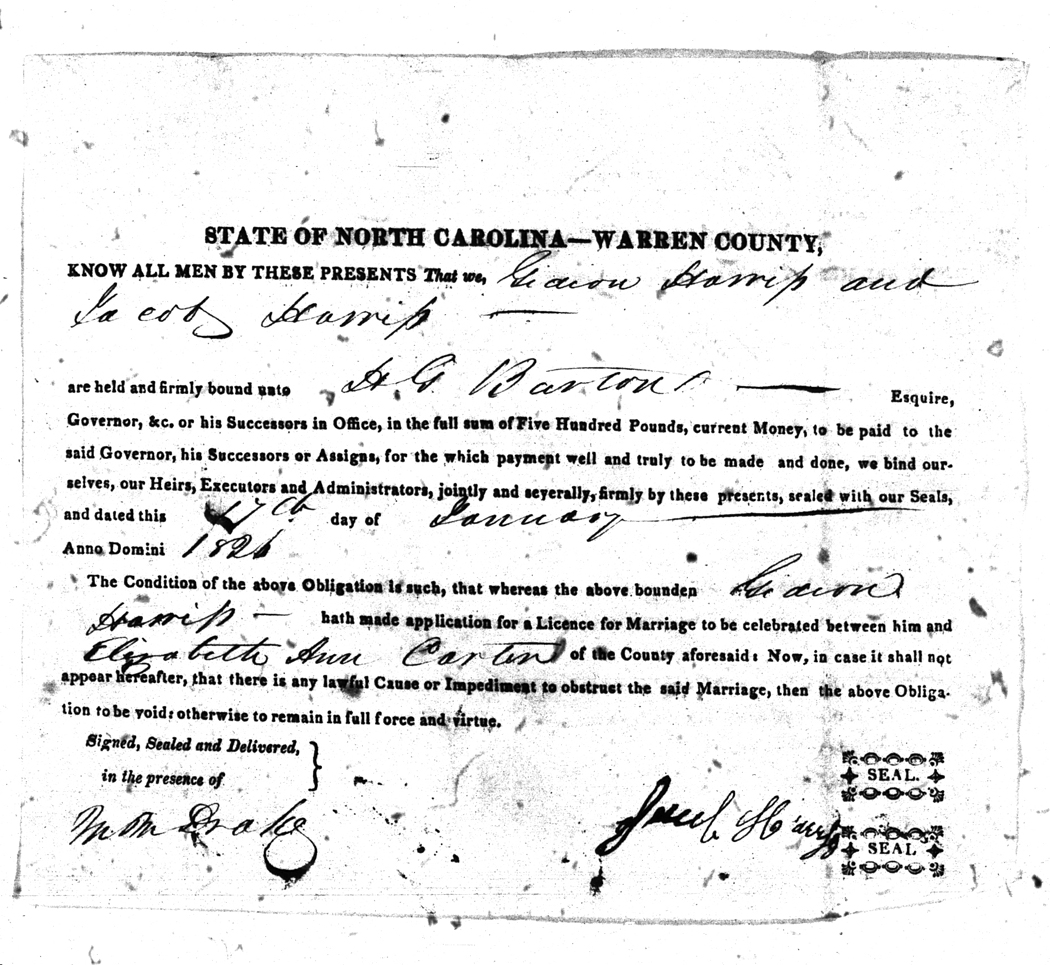 STATE OF NORTH CAROLINA—WARREN COUNTY,
KNOW ALL MEN BY THESE PRESENTS That we, Gideon Harriss and
Jacob Harriss
are held and firmly bound unto H G Burton Esquire,
Governor, &c. or his Successors in Office, in the full sum of Five Hundred Pounds, current Money, to be paid to the
said Governor, his Successors or Assigns, for the which payment well and truly to be made and done, we bind our-
selves, our Heirs, Executors and Administrators, jointly and severally, firmly by these presents, sealed with our Seals,
and dated this 17th day of January
Anno Domini 1826
The Condition of the above Obligation is such, that whereas the above bounden Gideon
Harriss hath made application for a Licence for Marriage to be celebrated between him and
Elizabeth Ann Carter of the County aforesaid: Now, in case it shall not
appear hereafter, that there is any lawful Cause or Impediment to obstruct the said Marriage, then the above Obliga-
tion to be void: otherwise to remain in full force and virtue.
Signed, Sealed and Delivered,
in the presence of
M M Drake
Jacob Harriss
SEAL.
SEAL